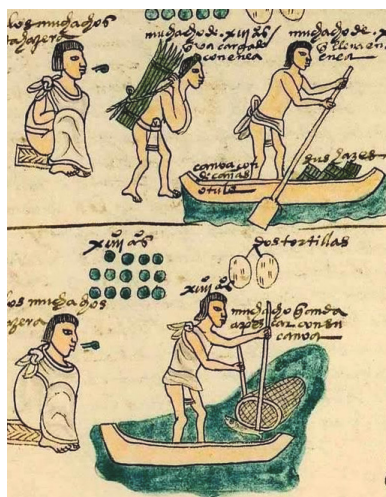 os muchachos
ta hazera
muchacho de .xiij aºs
q va cargado
con enea
muchacho de .x
q lleva en
enea
canoa con
sus hazes
de cañas
o tule
xiiij aºs
dos tortillas
xiiij aºs
os muchachos
azera
muchacho q anda
a pescar con su
canoa